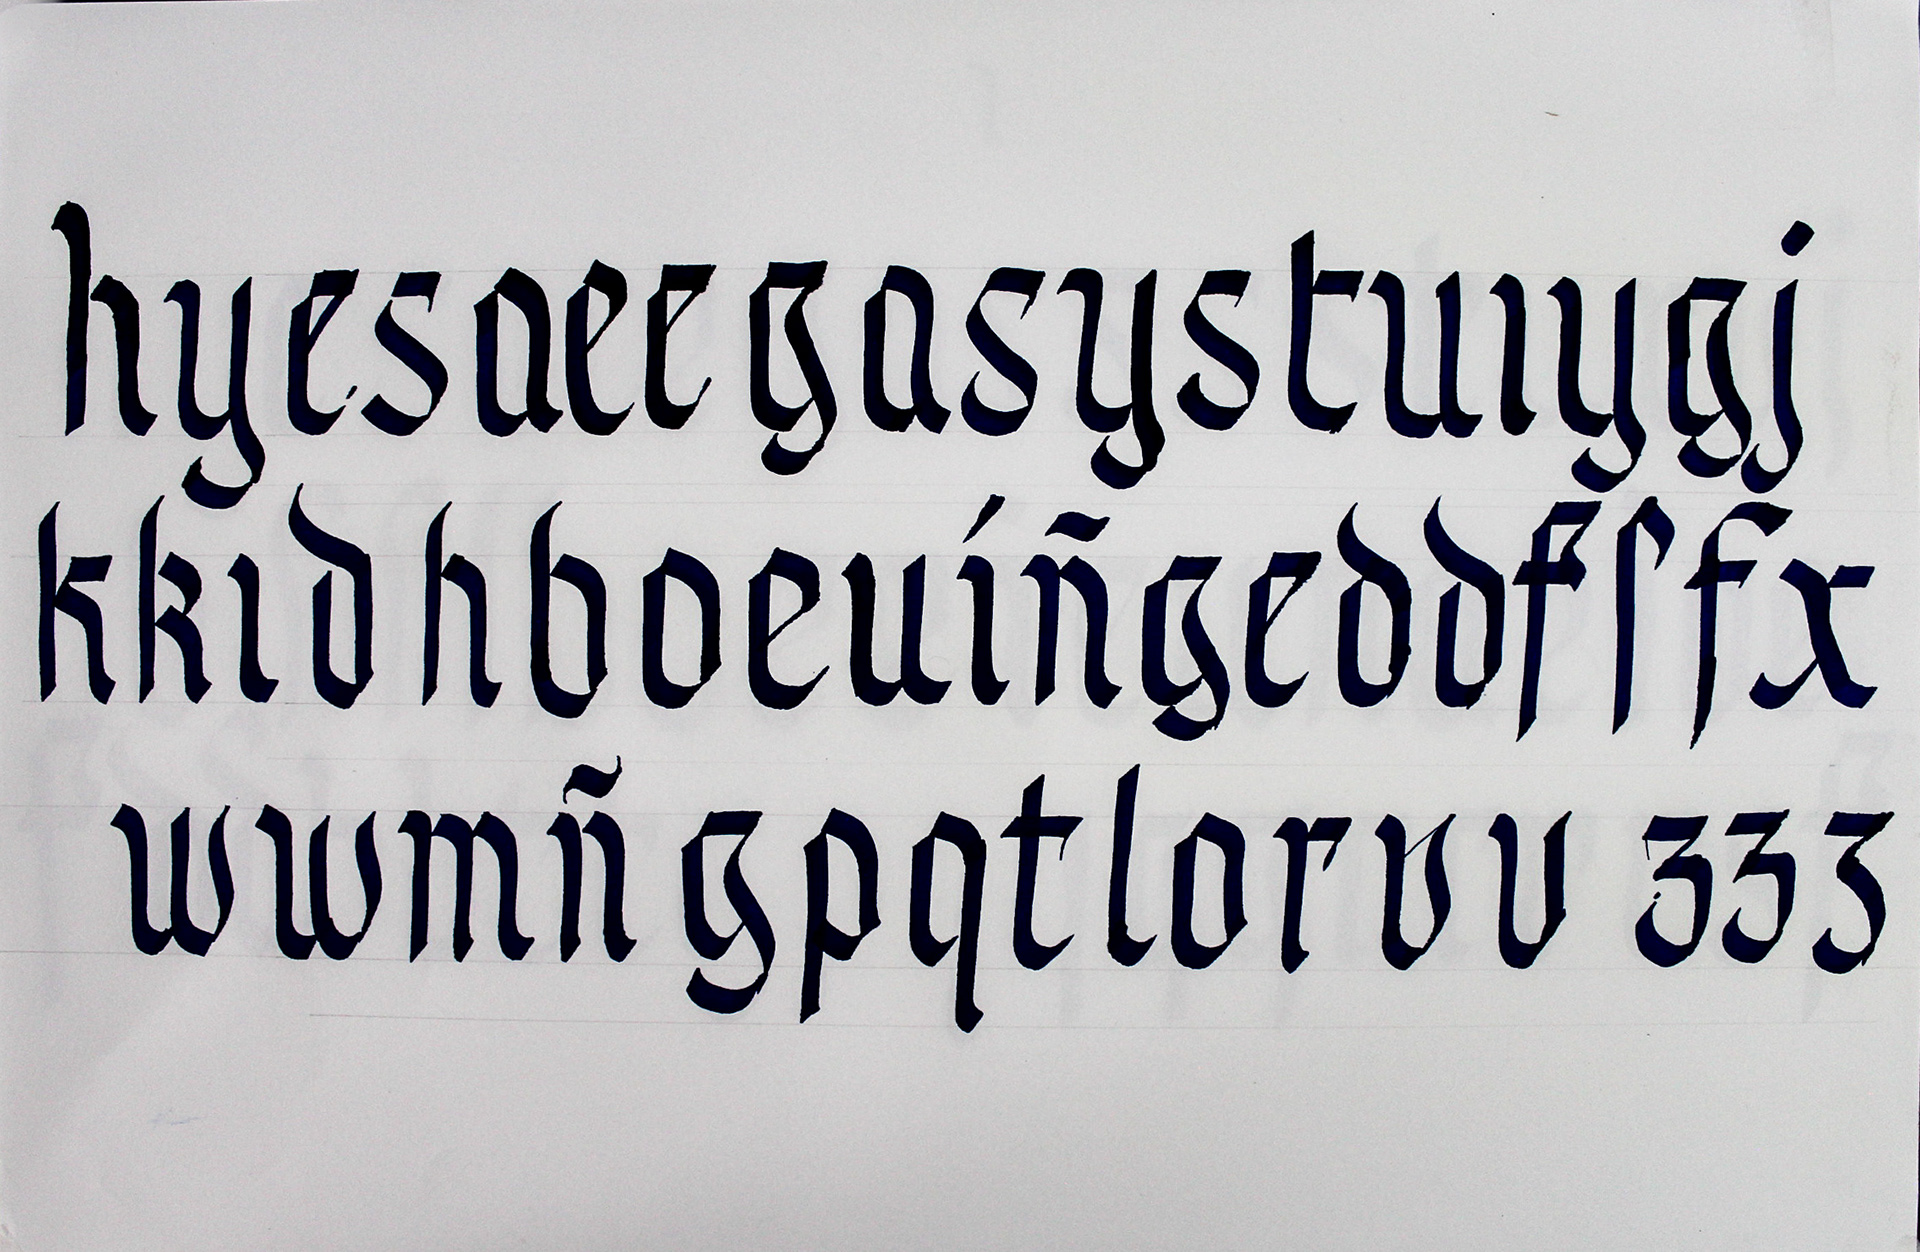 hyesaee gasystuıygj
kkıd hboeuíñgeddfſfx
wwmñ gpqtlorvv 333